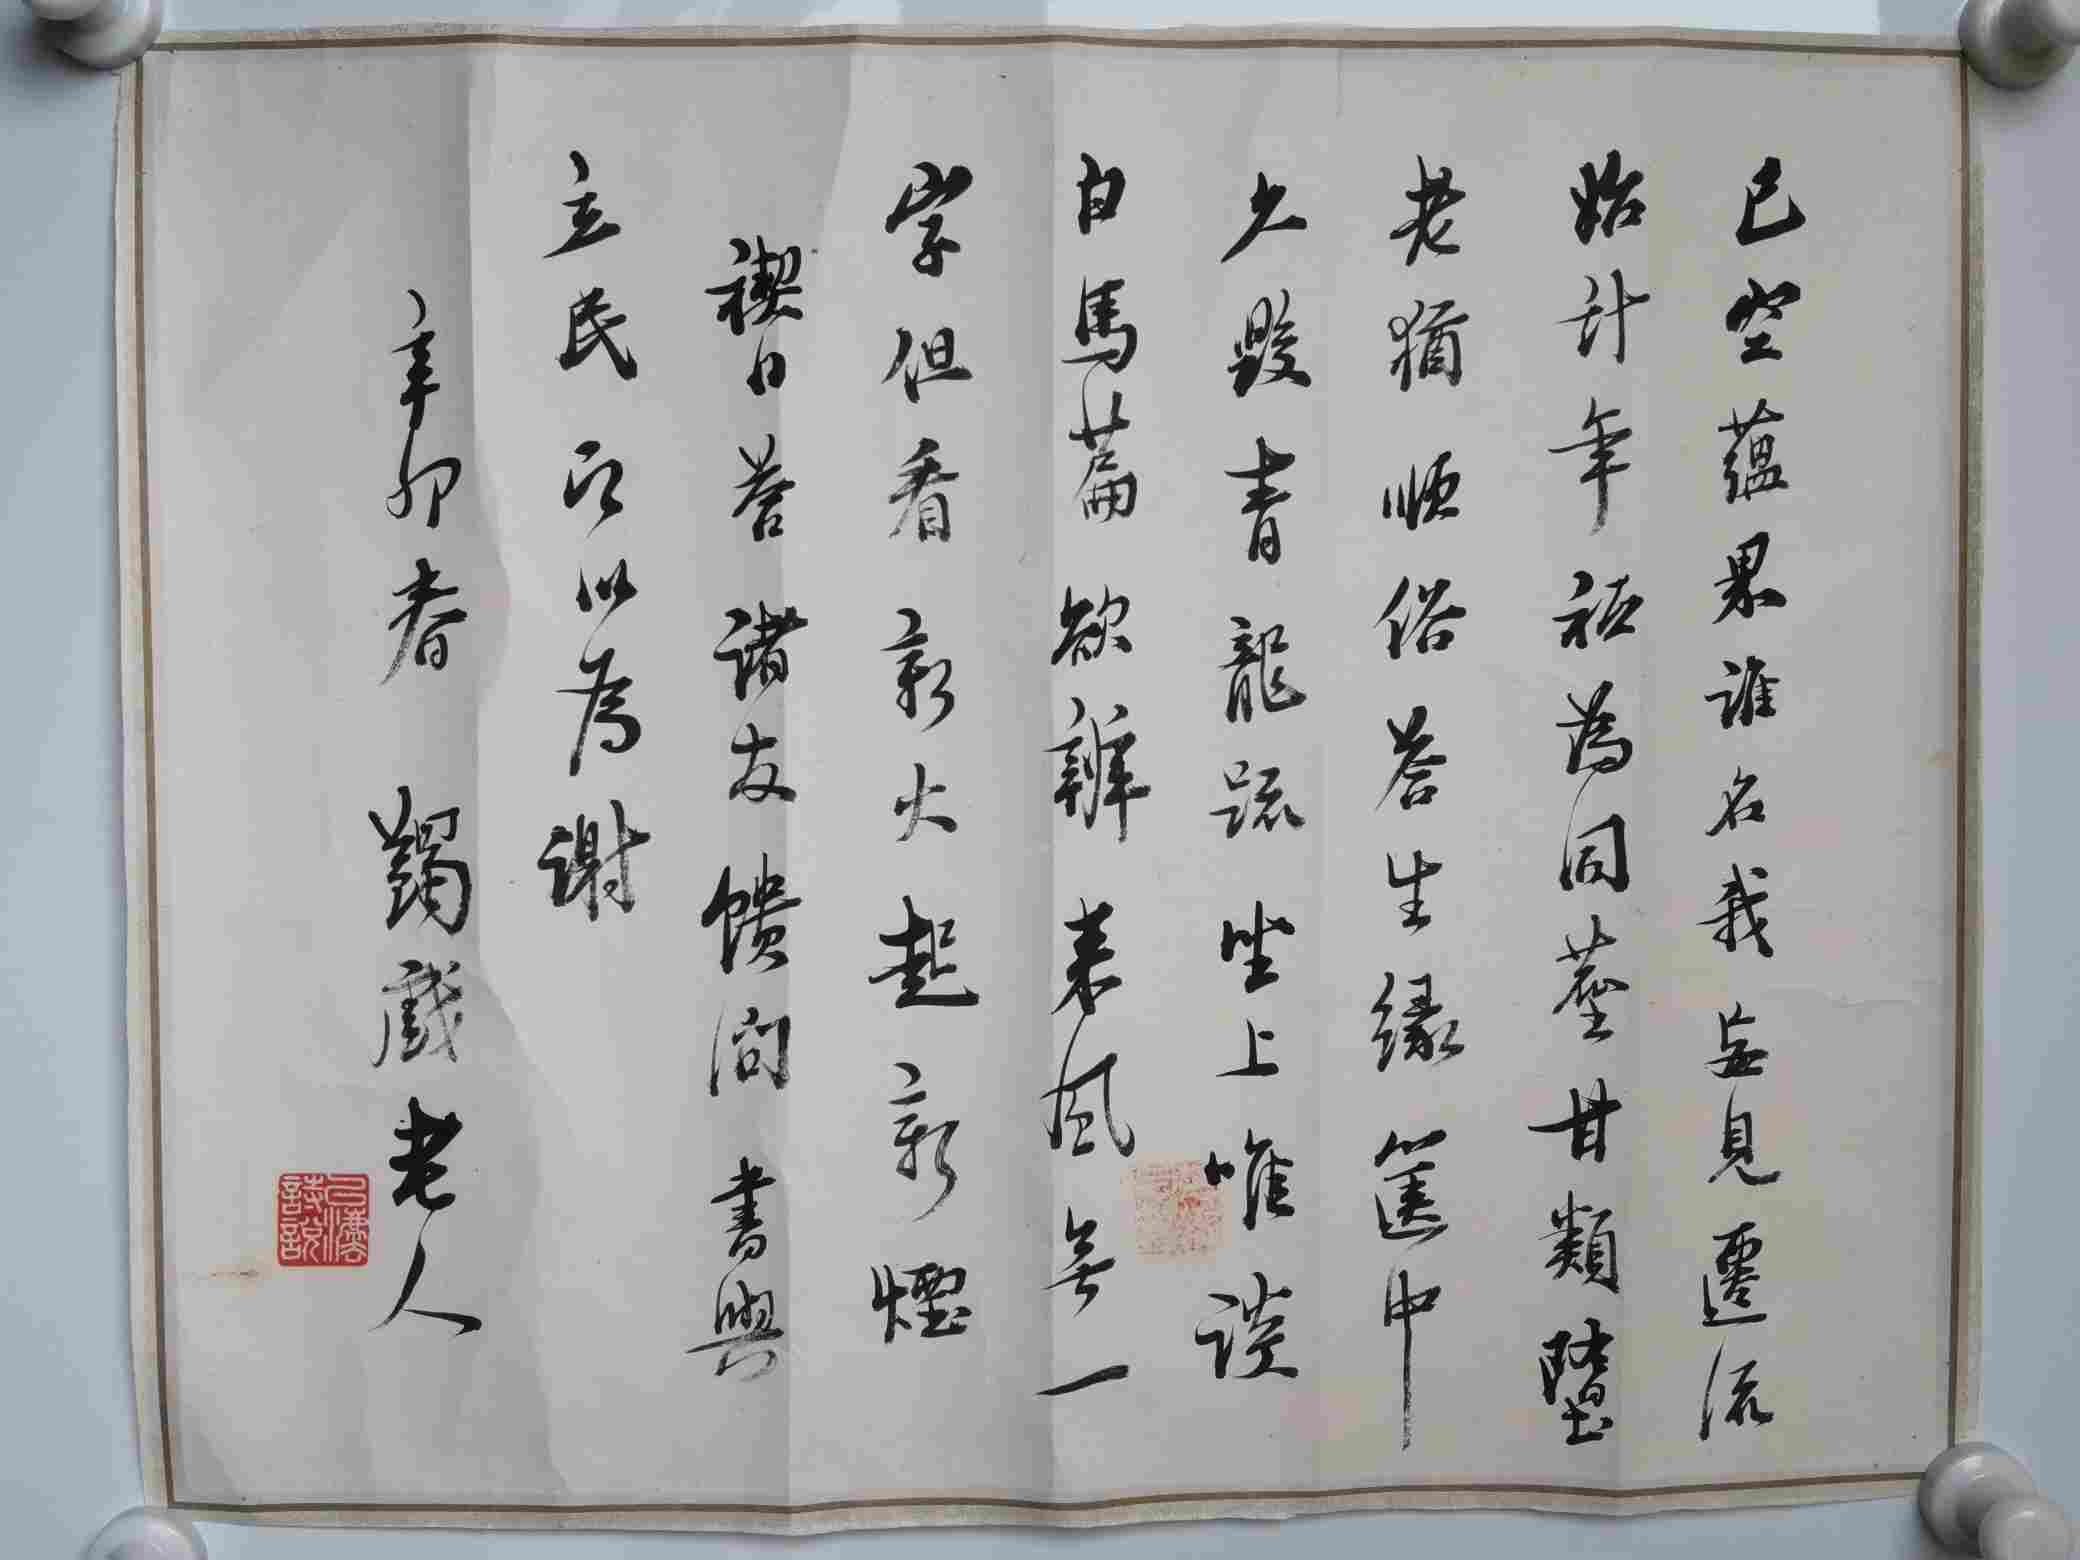 已空蘊界誰名我無見遷流
始計年祗為同塵甘類墮
老猶順俗答生緣篋中
久毀青龍疏坐上唯談
白馬篇欲辨來風無一
字但看新火起新煙
禊日答諸友饋問書與
立民即以為謝
辛卯春 蠲戲老人